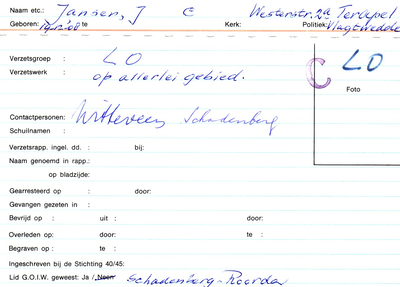 Naam etc.: Jansen, J C Westerstr. 2a Terapel
Geboren: 19-12-00 te Kerk: Politiek: Vlagtwedde
Verzetsgroep : LO
Verzetswerk : op allerlei gebied.
C LO
Foto
Contactpersonen: Witteveen Schadenberg
Schuilnaam :
Verzetsrapp. ingel. dd. : bij:
Naam genoemd in rapp.:
op bladzijde:
Gearresteerd op : door:
Gevangen gezeten in :
Bevrijd op : uit : door:
Overleden op: door: te :
Begraven op : te :
Ingeschreven bij de Stichting 40/45:
Lid G.O.I.W. geweest: Ja / Neen Schadenberg-Roorda